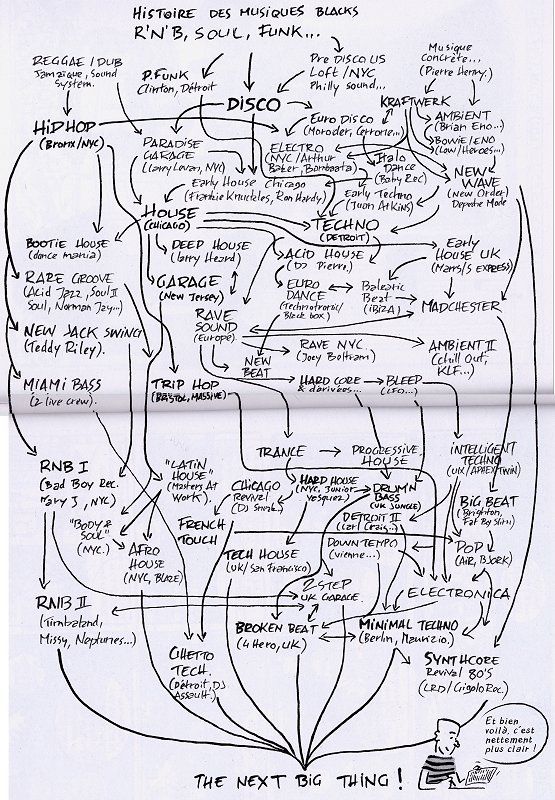 HISTOIRE DES MUSIQUES BLACKS
R'N'B, SOUL, FUNK...
REGGAE/DUB
Jamaïque, Sound
System.
P.FUNK
Clinton, Détroit
Pre DISCO US
Loft/NYC
Philly sound...
Musique
Concrète...
(Pierre Henry.)
DISCO
KRAFTWERK
HIPHOP
(Bronx/NYC)
PARADISE
GARAGE
(Larry Levan, NYC)
Euro Disco
(Moroder, Cerrone...)
AMBIENT
(Brian Eno...)
ELECTRO
(NYC/Arthur
Baker, Bambaata)
Italo
Dance
(Baby Rec)
BOWIE/ENO
(Low/Heroes...)
NEW
WAVE
(New Order)
Depeche Mode
Early House Chicago
(Frankie Knuckles, Ron Hardy)
Early Techno
(Juan Atkins)
HOUSE
(CHICAGO)
TECHNO
(DETROIT)
BOOTIE HOUSE
(dance mania)
DEEP HOUSE
(Larry Heard)
ACID HOUSE
(DJ Pierre)
Early
HOUSE UK
(Marrs/S'EXPRESS)
RARE GROOVE
(Acid Jazz, Soul II
Soul, Norman Jay...)
GARAGE
(NEW JERSEY)
EURO
DANCE
(Technotronic/
Black box)
Balearic
Beat
(iBiZA)
MADCHESTER
NEW JACK SWING
(Teddy Riley).
RAVE
SOUND
(Europe)
RAVE NYC.
(Joey Beltram)
AMBIENT II
(Chill Out,
KLF...)
NEW
BEAT
MIAMI BASS
(2 live crew).
TRIP HOP
(BRISTOL, MASSIVE)
HARD CORE
& dérivées...
BLEEP
(LFO...)
TRANCE
PROGRESSIVE
HOUSE
INTELLIGENT
TECHNO
(UK/APHEX TWIN)
RNB I
(Bad Boy Rec.
Mary J, NYC)
"LATIN
HOUSE"
(Masters At
Work).
CHICAGO
Revival
(DJ Sneak..)
HARD HOUSE
(NYC, Junior
Vasquez)
DRUM'N
BASS
(UK JUNGLE)
BIG BEAT
(Brighton,
Fat Boy Slim)
"BODY &
SOUL"
(NYC.)
FRENCH
TOUCH
DETROIT II
(Carl Craig...)
AFRO
HOUSE
(NYC, BLAZE)
TECH HOUSE
(UK/San Francisco)
DOWNTEMPO
(vienne...)
POP
(AIR, BJORK)
RNB II
(Timbaland,
Missy, Neptunes...)
2 STEP
UK GARAGE.
ELECTRONICA
BROKEN BEAT
(4 Hero, UK)
MINIMAL TECHNO
(Berlin, Maurizio.)
GHETTO
TECH.
(Détroit, DJ
Assault.)
SYNTHCORE
Revival 80'S
Et bien
voilà, c'est
nettement
plus clair !
THE NEXT BIG THING !